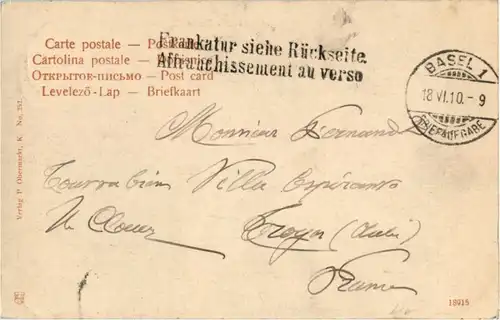 Carte postale — Postkarte
Cartolina postale —
ОТКРЫТОЕ-ПИСЬМО — Post card
Levelező-Lap — Briefkaart
Frankatur siehe Rückseite.
Affranchissement au verso
BASEL 1
18.VI.10.–9
BRIEFAUFGABE
Monsieur Fernand
Villa Espéranto
Troyes (Aube)
France
Verlag P. Obermarkt, K. No. 251.
18915